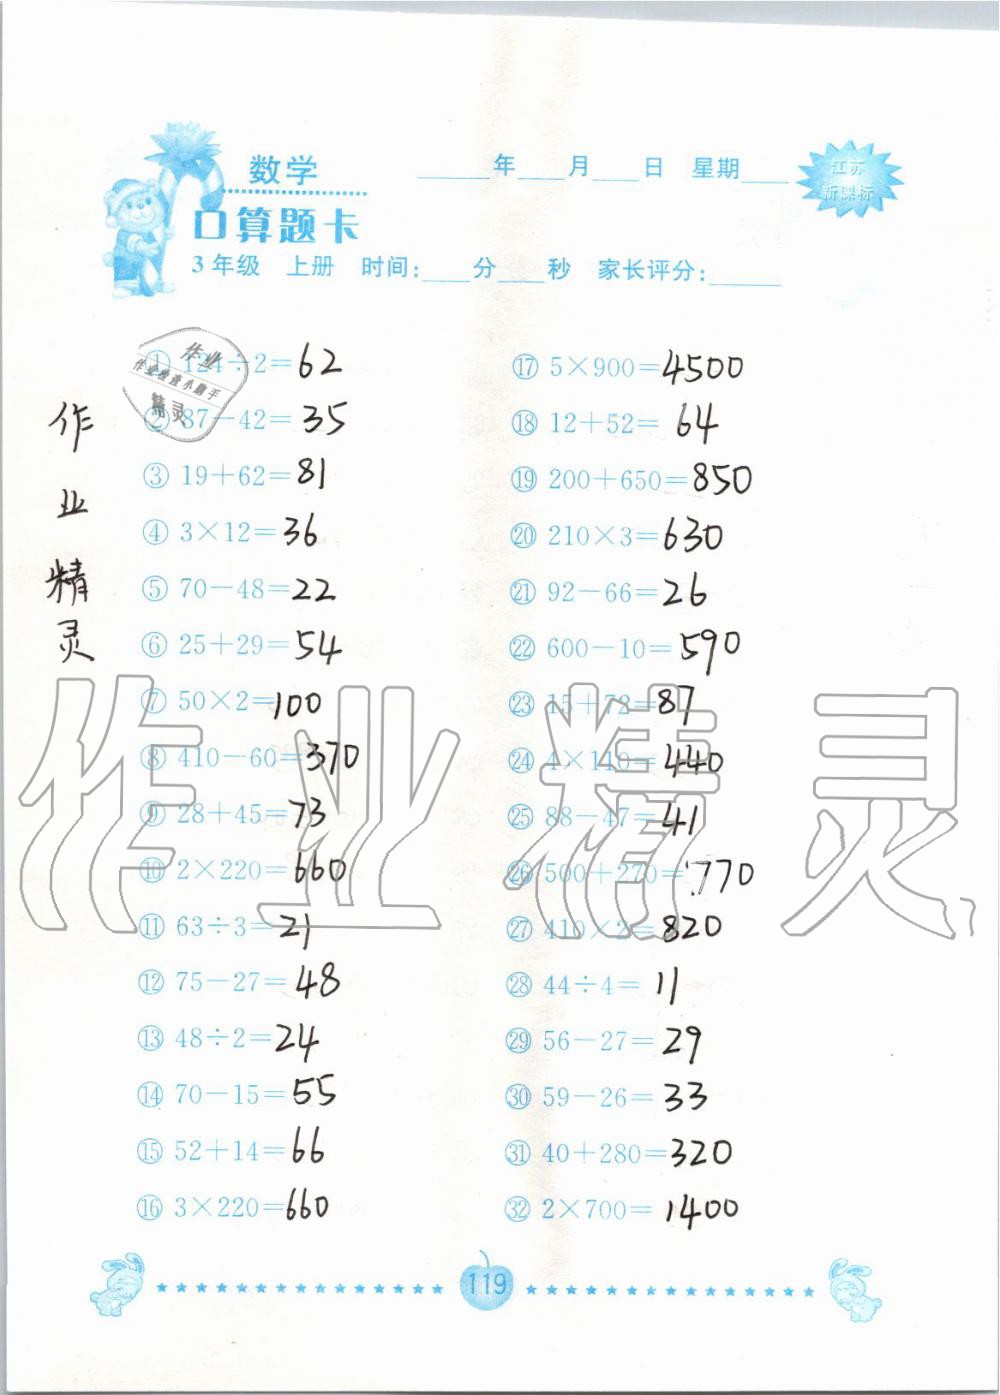 数学
口算题卡
____年___月___日 星期___
江苏
新课标
3年级 上册 时间:___分___秒 家长评分:____
作业
作业检查小助手
精灵
作业精灵
① 124÷2=62
② 87-42=35
③ 19+62=81
④ 3×12=36
⑤ 70-48=22
⑥ 25+29=54
⑦ 50×2=100
⑧ 410-60=370
⑨ 28+45=73
⑩ 2×220=660
⑪ 63÷3=21
⑫ 75-27=48
⑬ 48÷2=24
⑭ 70-15=55
⑮ 52+14=66
⑯ 3×220=660
⑰ 5×900=4500
⑱ 12+52=64
⑲ 200+650=850
⑳ 210×3=630
㉑ 92-66=26
㉒ 600-10=590
㉓ 15+72=87
㉔ 4×110=440
㉕ 88-47=41
㉖ 500+270=770
㉗ 410×2=820
㉘ 44÷4=11
㉙ 56-27=29
㉚ 59-26=33
㉛ 40+280=320
㉜ 2×700=1400
作业精灵
119